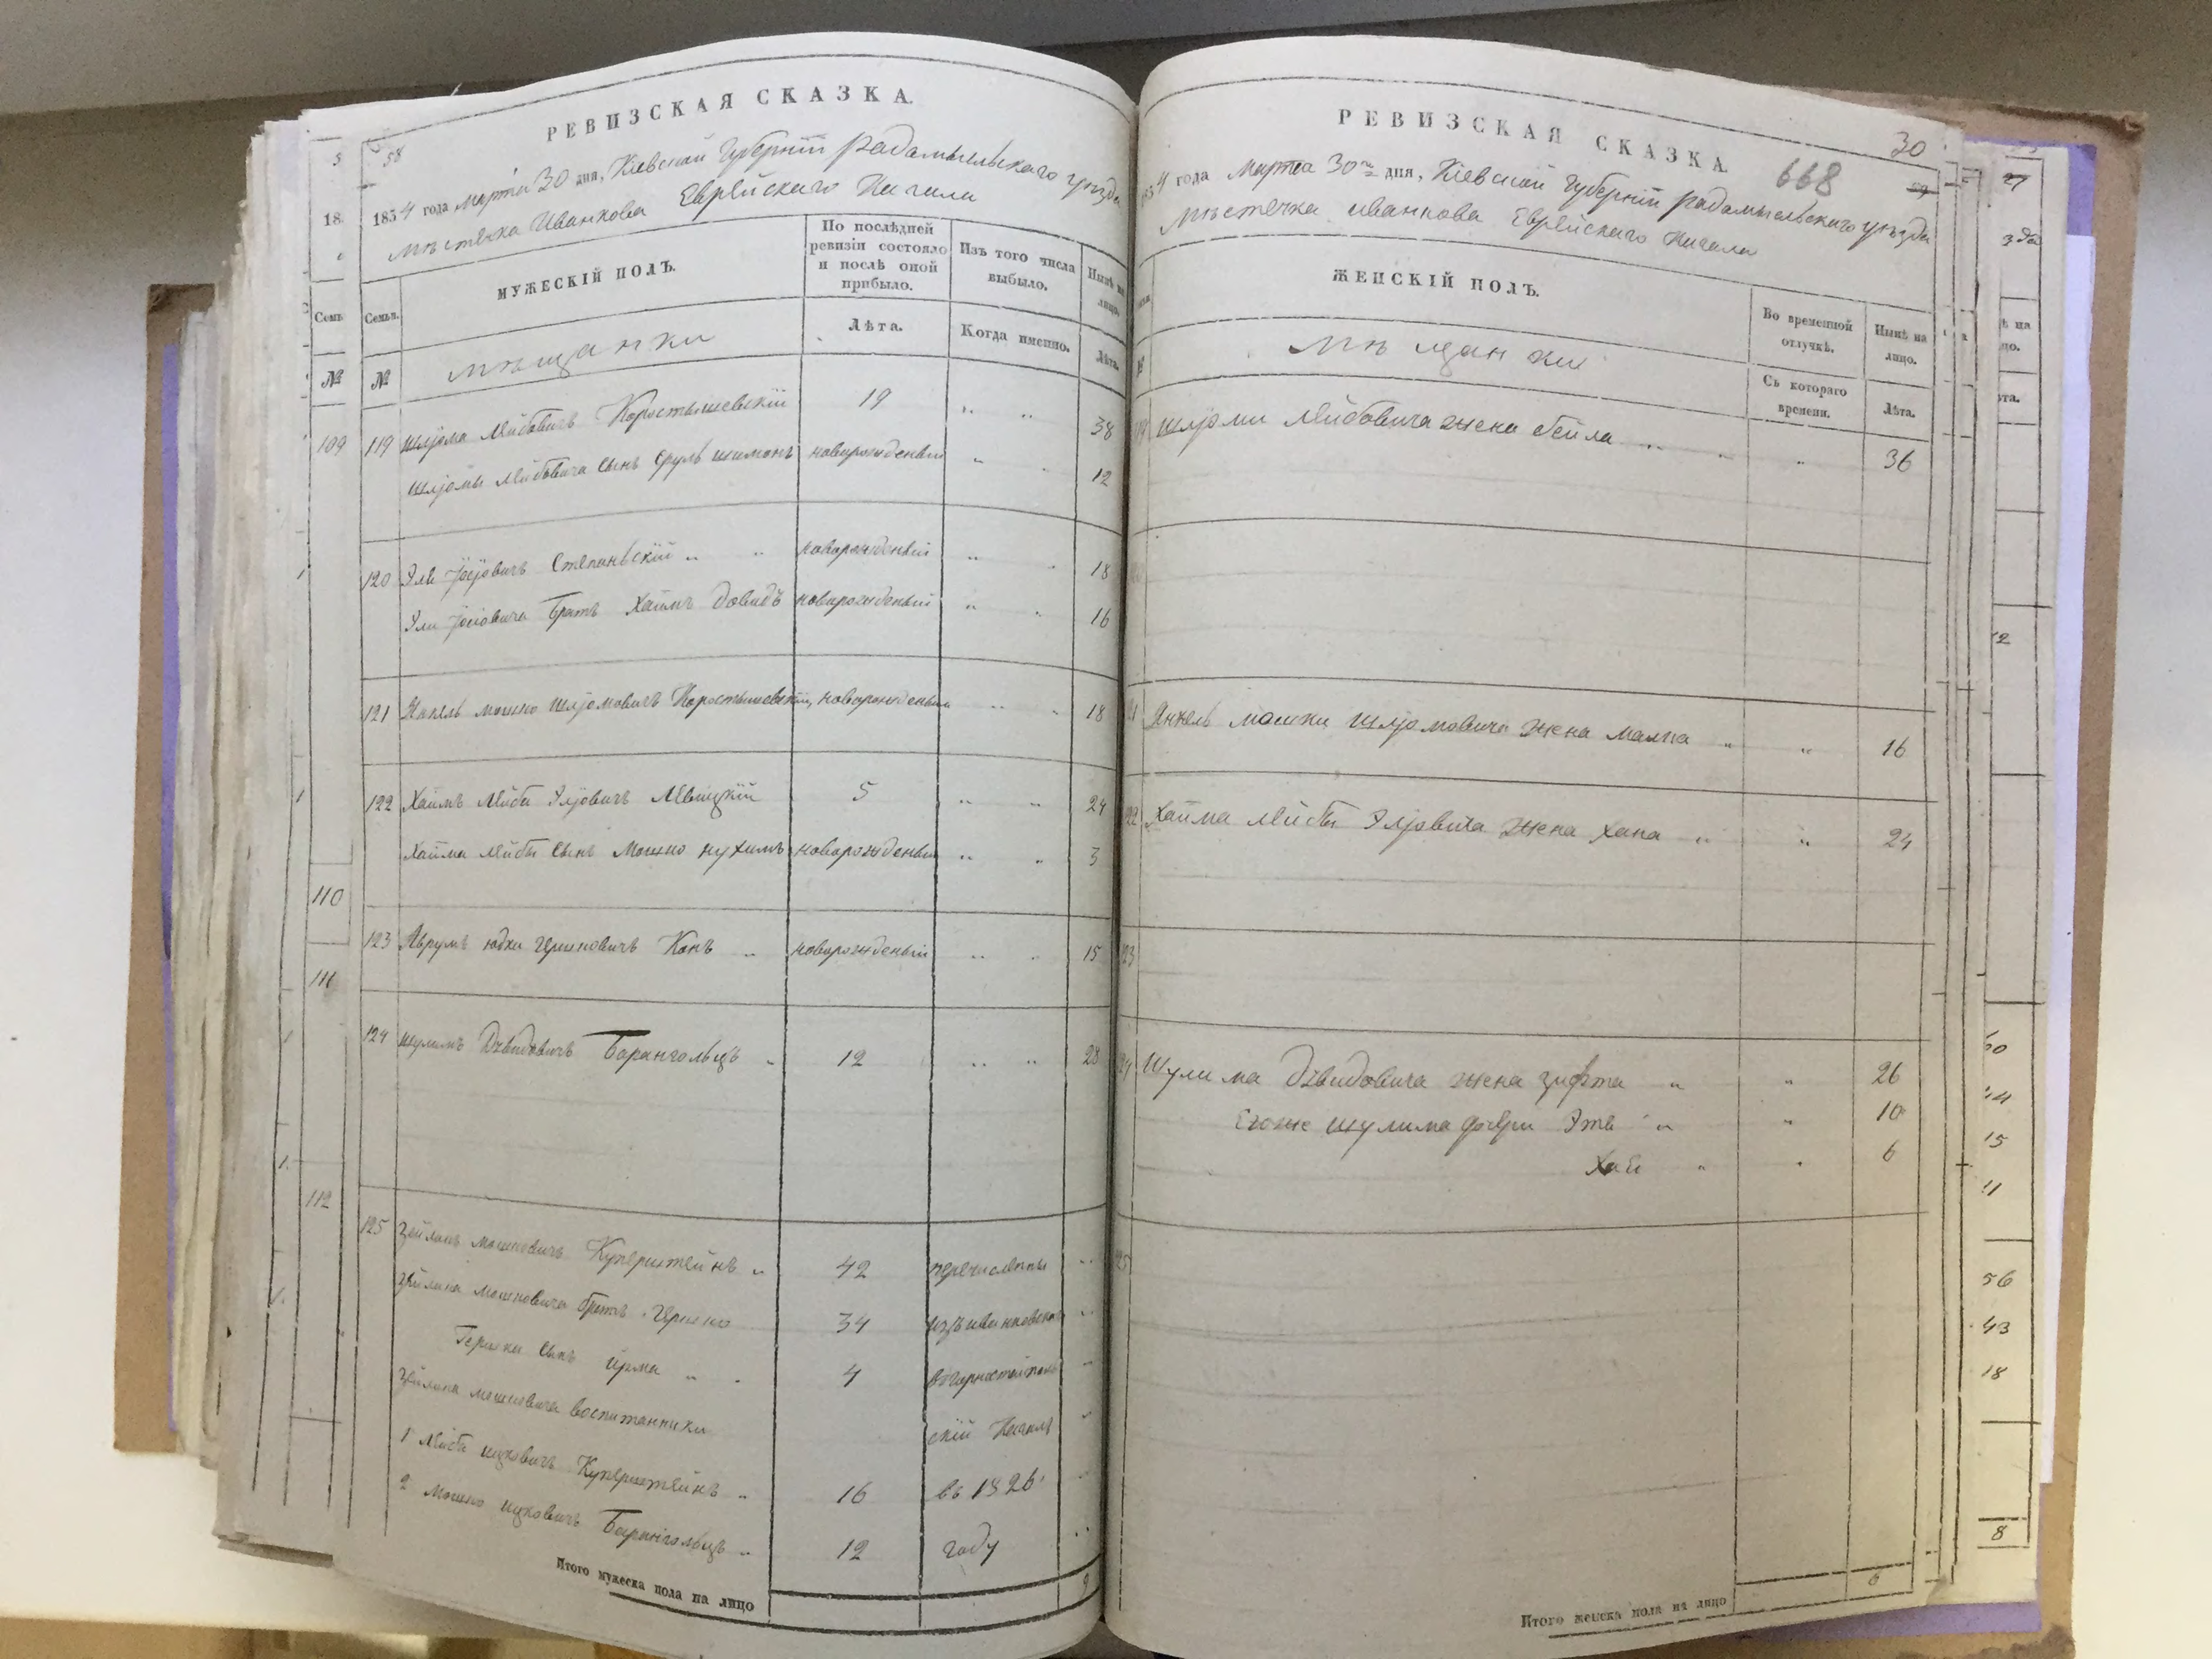 РЕВИЗСКАЯ СКАЗКА.
58
1854 года марта 30 дня, Кіевской Губерніи радомысльскаго уѣзда
мѣстечка Иванкова Еврейскаго Кагала
Семьи.
МУЖЕСКІЙ ПОЛЪ.
По послѣдней ревизіи состояло и послѣ оной прибыло.
Изъ того числа выбыло.
Нынѣ на лицо.
№
мѣщанки
Лѣта.
Когда именно.
Лѣта.
119 Шліома Лейбовичъ Коростышевскій 19 „ „ 38
Шліомы Лейбовича сынъ Сруль шимонъ новорожденый „ „ 12
120 Эли Іосіовичъ Степаньскій „ „ новорожденый „ „ 18
Эли Іосіовича братъ Хаимъ Довидъ новорожденый „ „ 16
121 Янкель мошко шліомовичъ Коростышевскій, новорожденый „ „ 18
122 Хаимъ Лейба Эліовичъ Левицкій 5 „ „ 24
Хаима Лейбы сынъ Мошко нухимъ новорожденый „ „ 3
123 Аврумъ юдка Гершковичъ Канъ „ новорожденый „ „ 15
124 шулимъ Давидовичъ Барангольцъ „ 12 „ „ 28
125 Зейликъ мошковичъ Куперштейнъ „ 42 перечислены „
Зейлика мошковича братъ Гершко 34 изъ иванковскаго „
Гершки сынъ Срма „ „ 4 вгорностайполь „
Зейлика мошковича воспитанники скій Кагалъ „
1 Лейба ицковичъ Куперштейнъ „ 16 въ 1826 „
2 Мошко ицковичъ Барангольцъ „ 12 году „
Итого мужеска пола на лицо 9
РЕВИЗСКАЯ СКАЗКА.
30
668
1854 года марта 30го дня, Кіевской Губерніи радомысльскаго уѣзда
мѣстечка иванкова Еврейскаго Кагала
ЖЕНСКІЙ ПОЛЪ.
Во временной отлучкѣ.
Нынѣ на лицо.
№
мѣщанки
Съ котораго времени.
Лѣта.
119 шліомы Лейбовича жена бейла „ „ „ 36
121 Янкель мошки шліомовича жена малка „ „ 16
122 Хаима Лейбы Эліовича жена хана „ „ 24
123
124 Шулима Давидовича жена зисля „ „ 26
Егоже шулима дочери Этя „ „ 10
Хая „ „ 6
125
Итого женска пола на лицо 6
Семьи
№
109
110
111
112
56
43
18
8